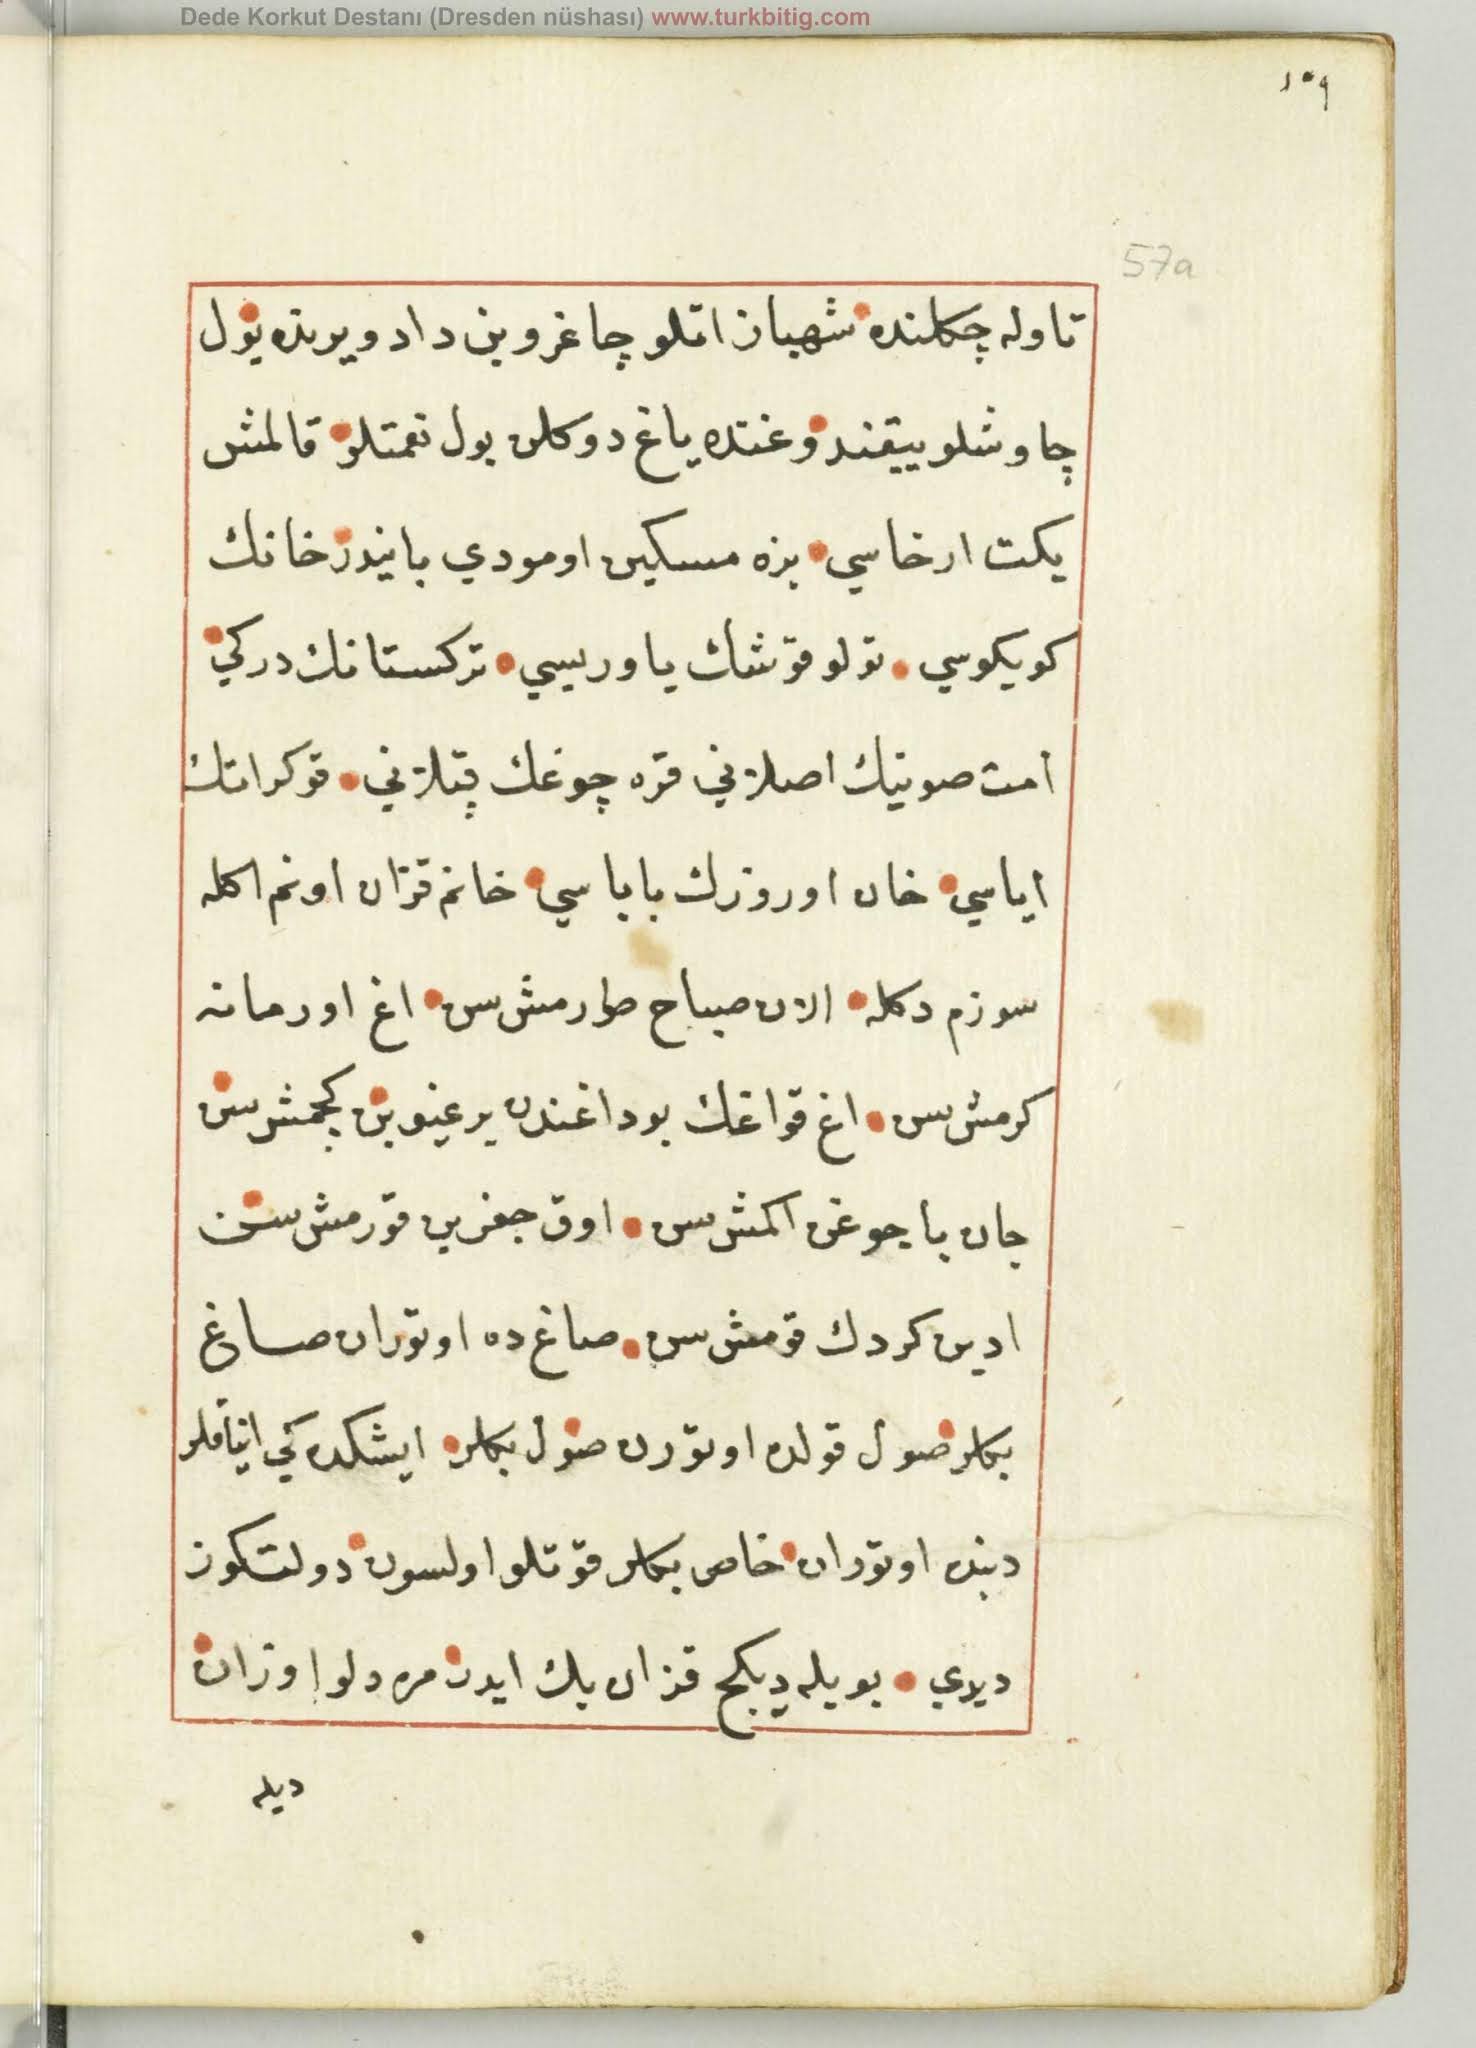 Dede Korkut Destanı (Dresden nüshası) www.turkbitig.com
١٠٩
57a
تاوله چكلنده شهباز اتلو چاغروبن داد ويرنده يول
چاوشلو ييقنده ياغ دوكلن بول نعمتلو قالمش
يكت ارخاسي بزه مسكين اومودي بايندر خانك
كويكوسي تولو قوشك ياوريسي تركستانك دركي
امت صوينك اصلاني قره چوغك قپلاني قوكر اتك
اياسي خان اوروزك باباسي خانم قزان اونم اكله
سوزم دكله الان صباح طورمش سن اغ اورمانه
كرمش سن اغ قواغك بوداغندن يرغيوبن كچمش سن
جان باجوغن اكمش سن اوق جغزين قورمش سن
ادين كردك قومش سن صاغ ده اوتوران صاغ
بكلر صول قولده اوتورن صول بكلر ايشكده كي ايناقلر
دبنده اوتوران خاص بكلر قوتلو اولسون دولتكوز
ديدي بويله ديكج قزان بك ايدر مره دلو اوزان
ديله